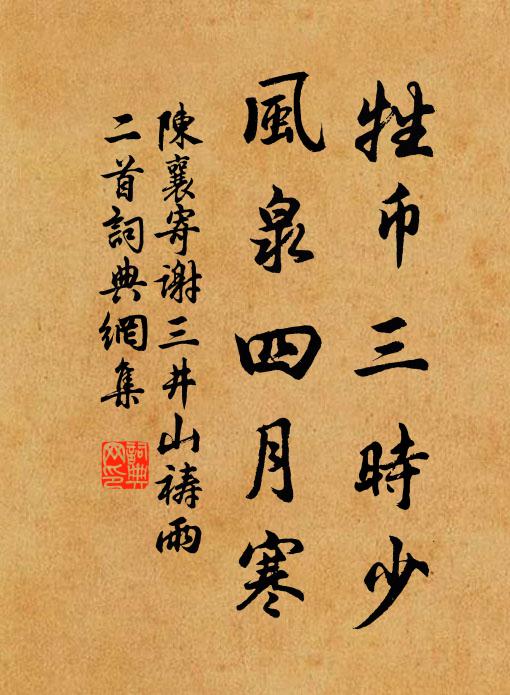 牲币三時少
風泉四月寒
陳襄寄謝三井山禱雨
二首詞典網集
詞典网印